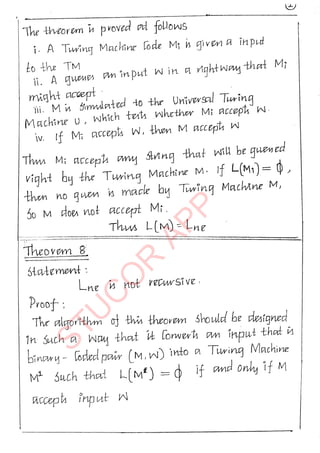 The theorem is proved as follows
i. A Turing Machine Code Mi is given a input
to the TM
ii. A guesses an input W in a right way that Mi
might accept.
iii. M is simulated to the Universal Turing
Machine U, which tells whether Mi accepts W.
iv. If Mi accepts W, then M accepts W
Thus Mi accepts any string that will be guessed
right by the Turing Machine M. If L(Mi) = ϕ,
then no guess is made by Turing Machine M,
So M does not accept Mi.
Thus L(M) = Lne
Theorem 8
Statement:
Lne is not recursive.
Proof:
The algorithm of this theorem should be designed
in such a way that it converts an input that is
binary-Coded pair (M, W) into a Turing Machine
M' such that L(M') = ϕ if and only if M
accepts input W
STUCOR APP